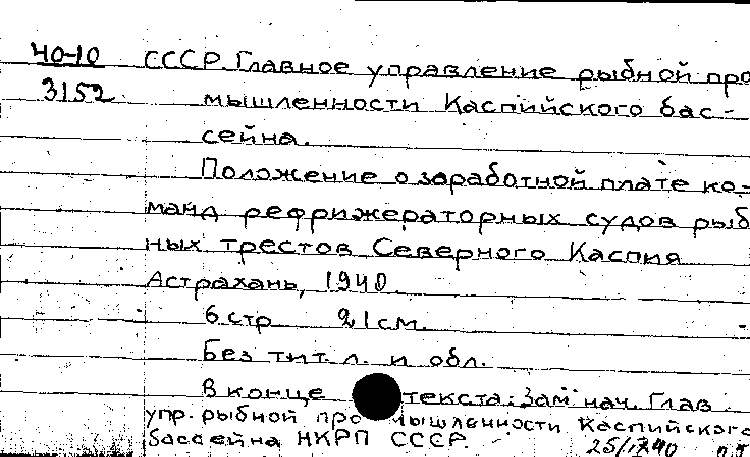 40-10 СССР. Главное управление рыбной про
3152 мышленности Каспийского бас-
сейна.
Положение о заработной плате ко-
манд рефрижераторных судов рыб
ных трестов Северного Каспия
Астрахань, 1940.
6 стр 21 см.
Без тит. л. и обл.
В конце текста: Зам нач. Глав
упр. рыбной про мышленности Каспийского
бассейна НКРП СССР.